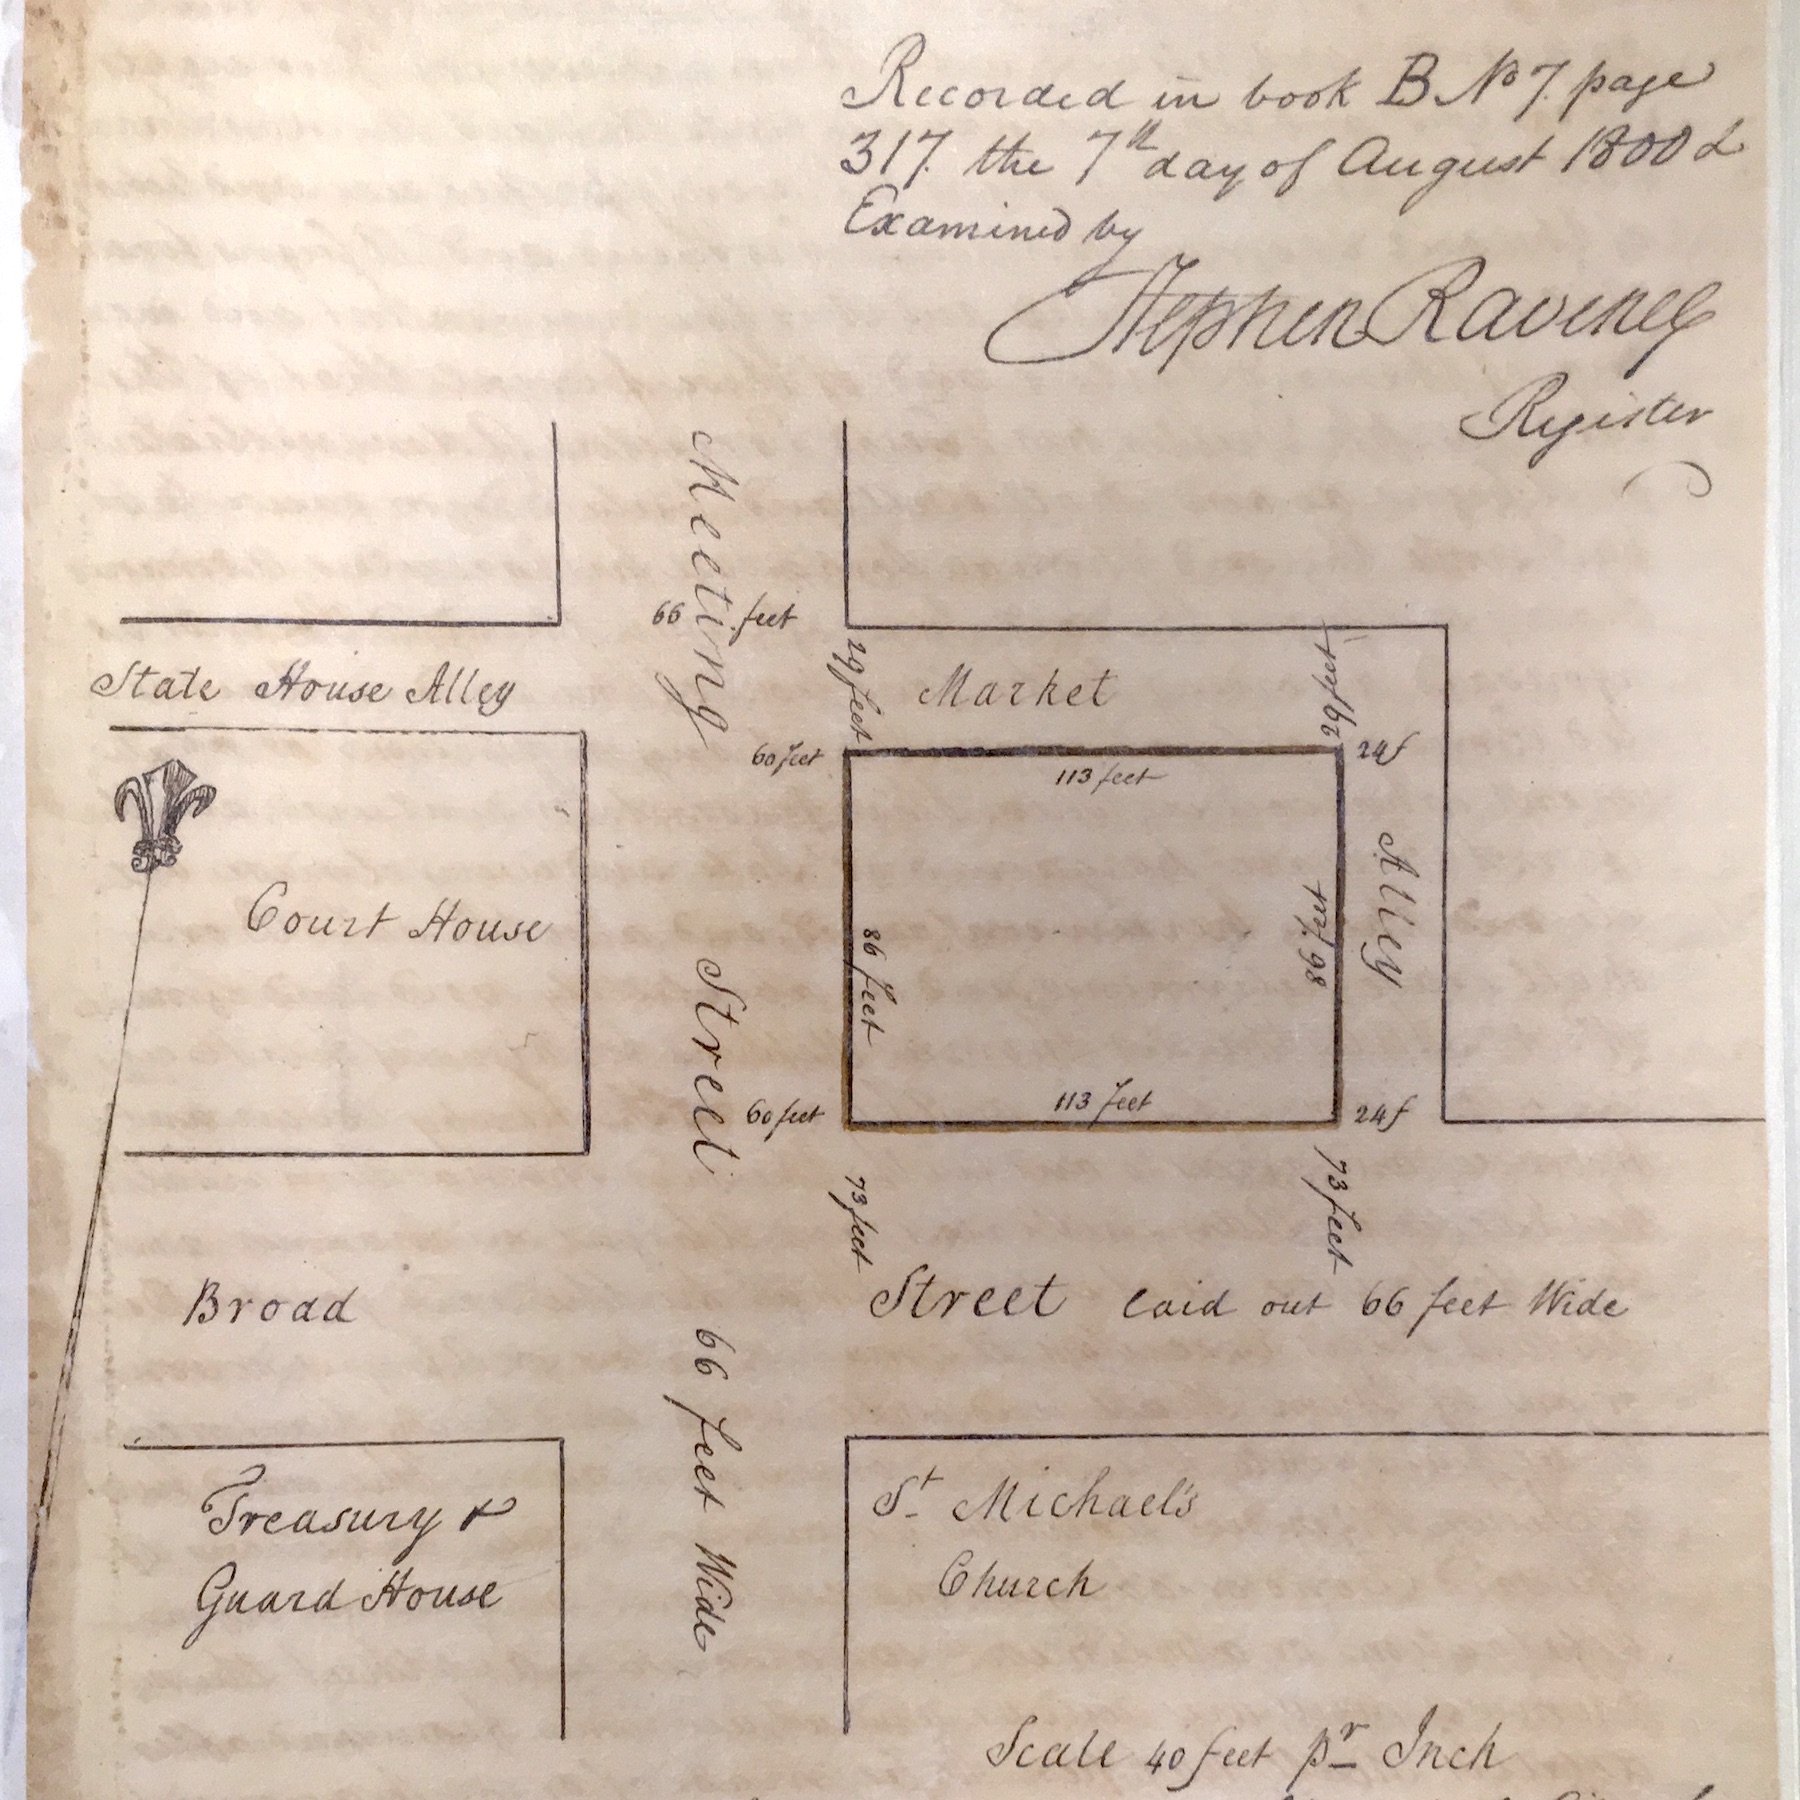 Recorded in book B No 7. page
317. the 7th day of August 1800 &
Examined by
Stephen Ravenel
Register
Meeting Street 66 feet Wide
66 feet
State House Alley
29 feet
Market
29 feet
60 feet
113 feet
24f
Court House
86 feet
86 feet
Alley
60 feet
113 feet
24f
73 feet
73 feet
Broad Street laid out 66 feet Wide
Treasury &
Guard House
St Michael's
Church
Scale 40 feet pr Inch